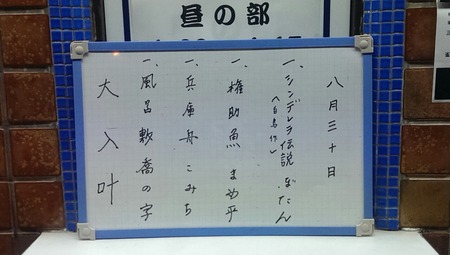 昼の部
八月三十日
一、シンデレラ伝説 ぼたん
(白鳥作)
一、権助魚 まめ平
一、兵庫舟 こみち
一、風呂敷 喬の字
大入叶